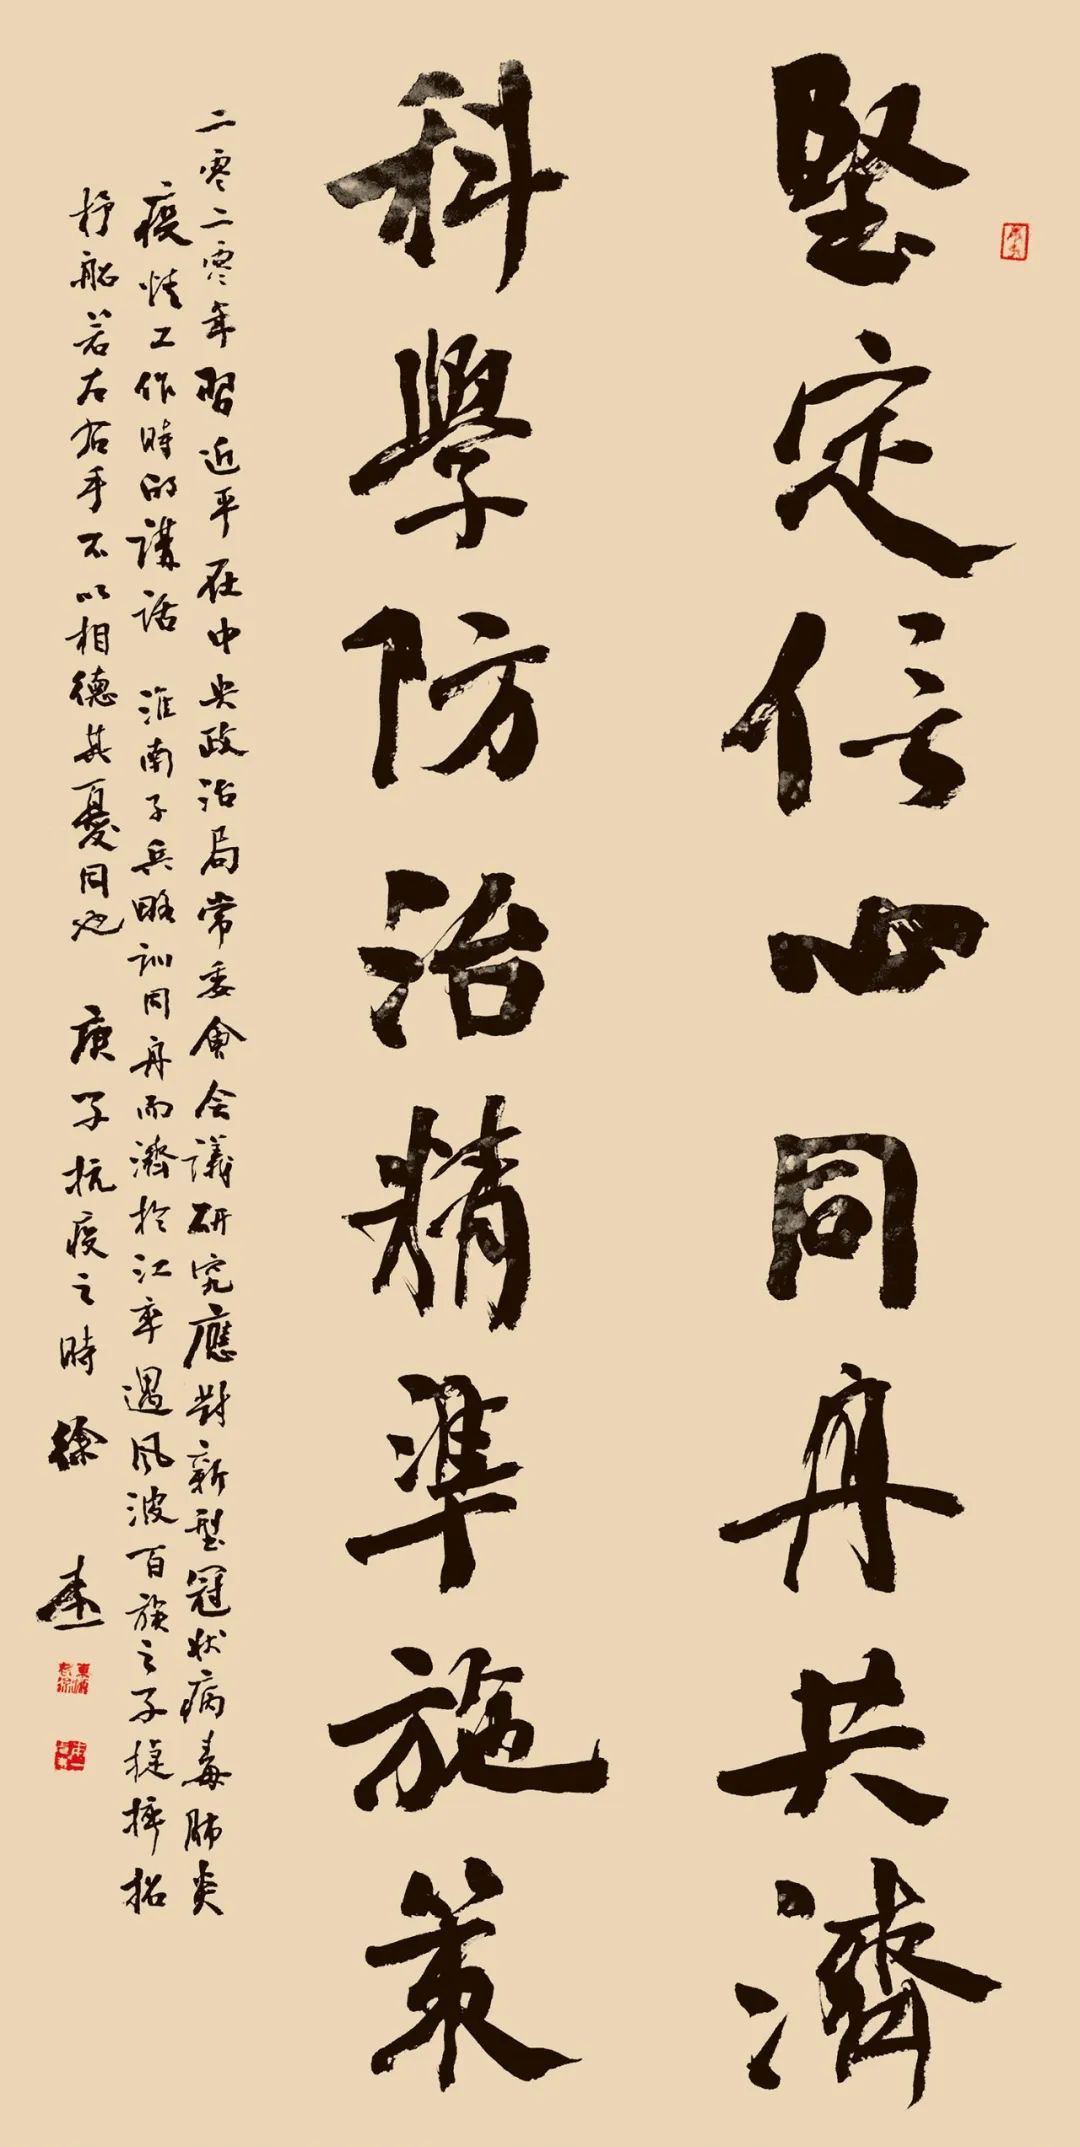 堅定信心同舟共濟
科學防治精準施策
二零二零年習近平在中央政治局常委會會議研究應對新型冠狀病毒肺炎
疫情工作時的講話 淮南子兵略訓同舟而濟於江卒遇風波百族之子捷捽招
杼船若左右手不以相德其憂同也 庚子抗疫之時 徐